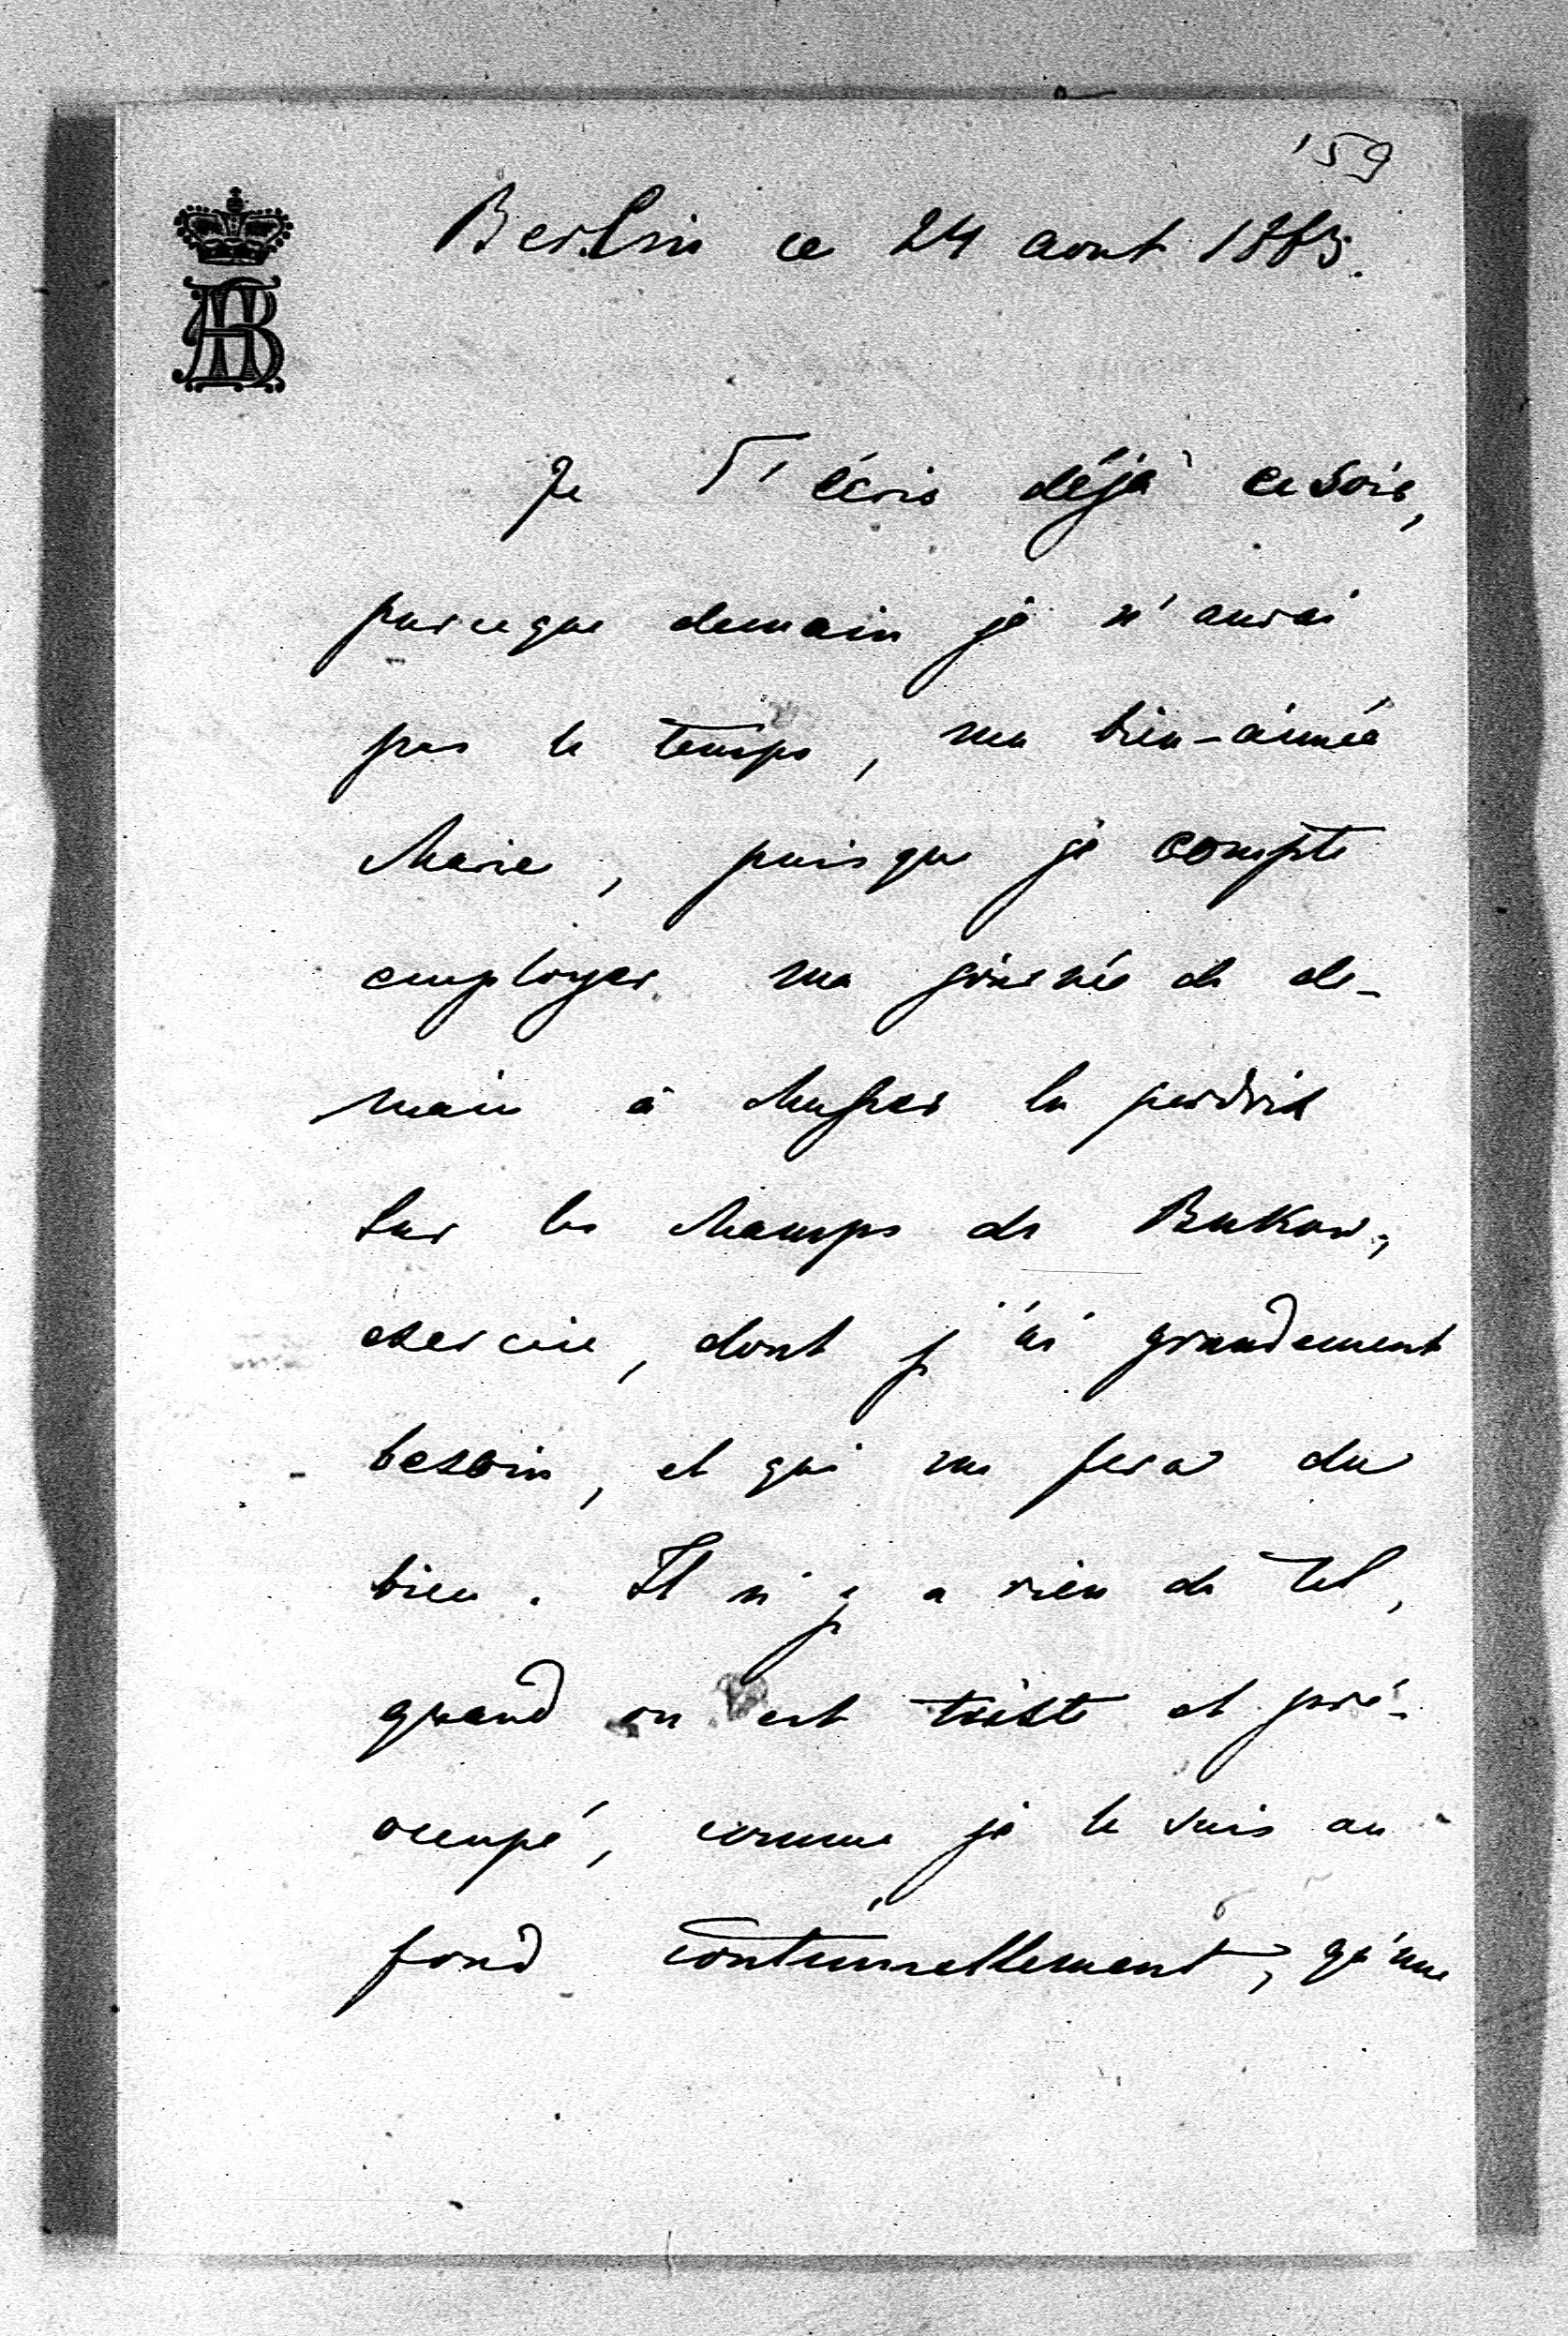 159
Berlin ce 24 aout 1865.
AB
Je T'écris déjà ce soir,
parceque demain je n'aurai
pas le temps, ma bien-aimée
Marie, puisque je compte
employer ma journée de de-
main à chasser la perdrix
sur les champs de Bukow,
exercice, dont j'ai grandement
besoin, et qui me fera du
bien. Il n'y a rien de tel,
quand on est triste et pré-
occupé, comme je le suis au
fond continuellement, qu'une